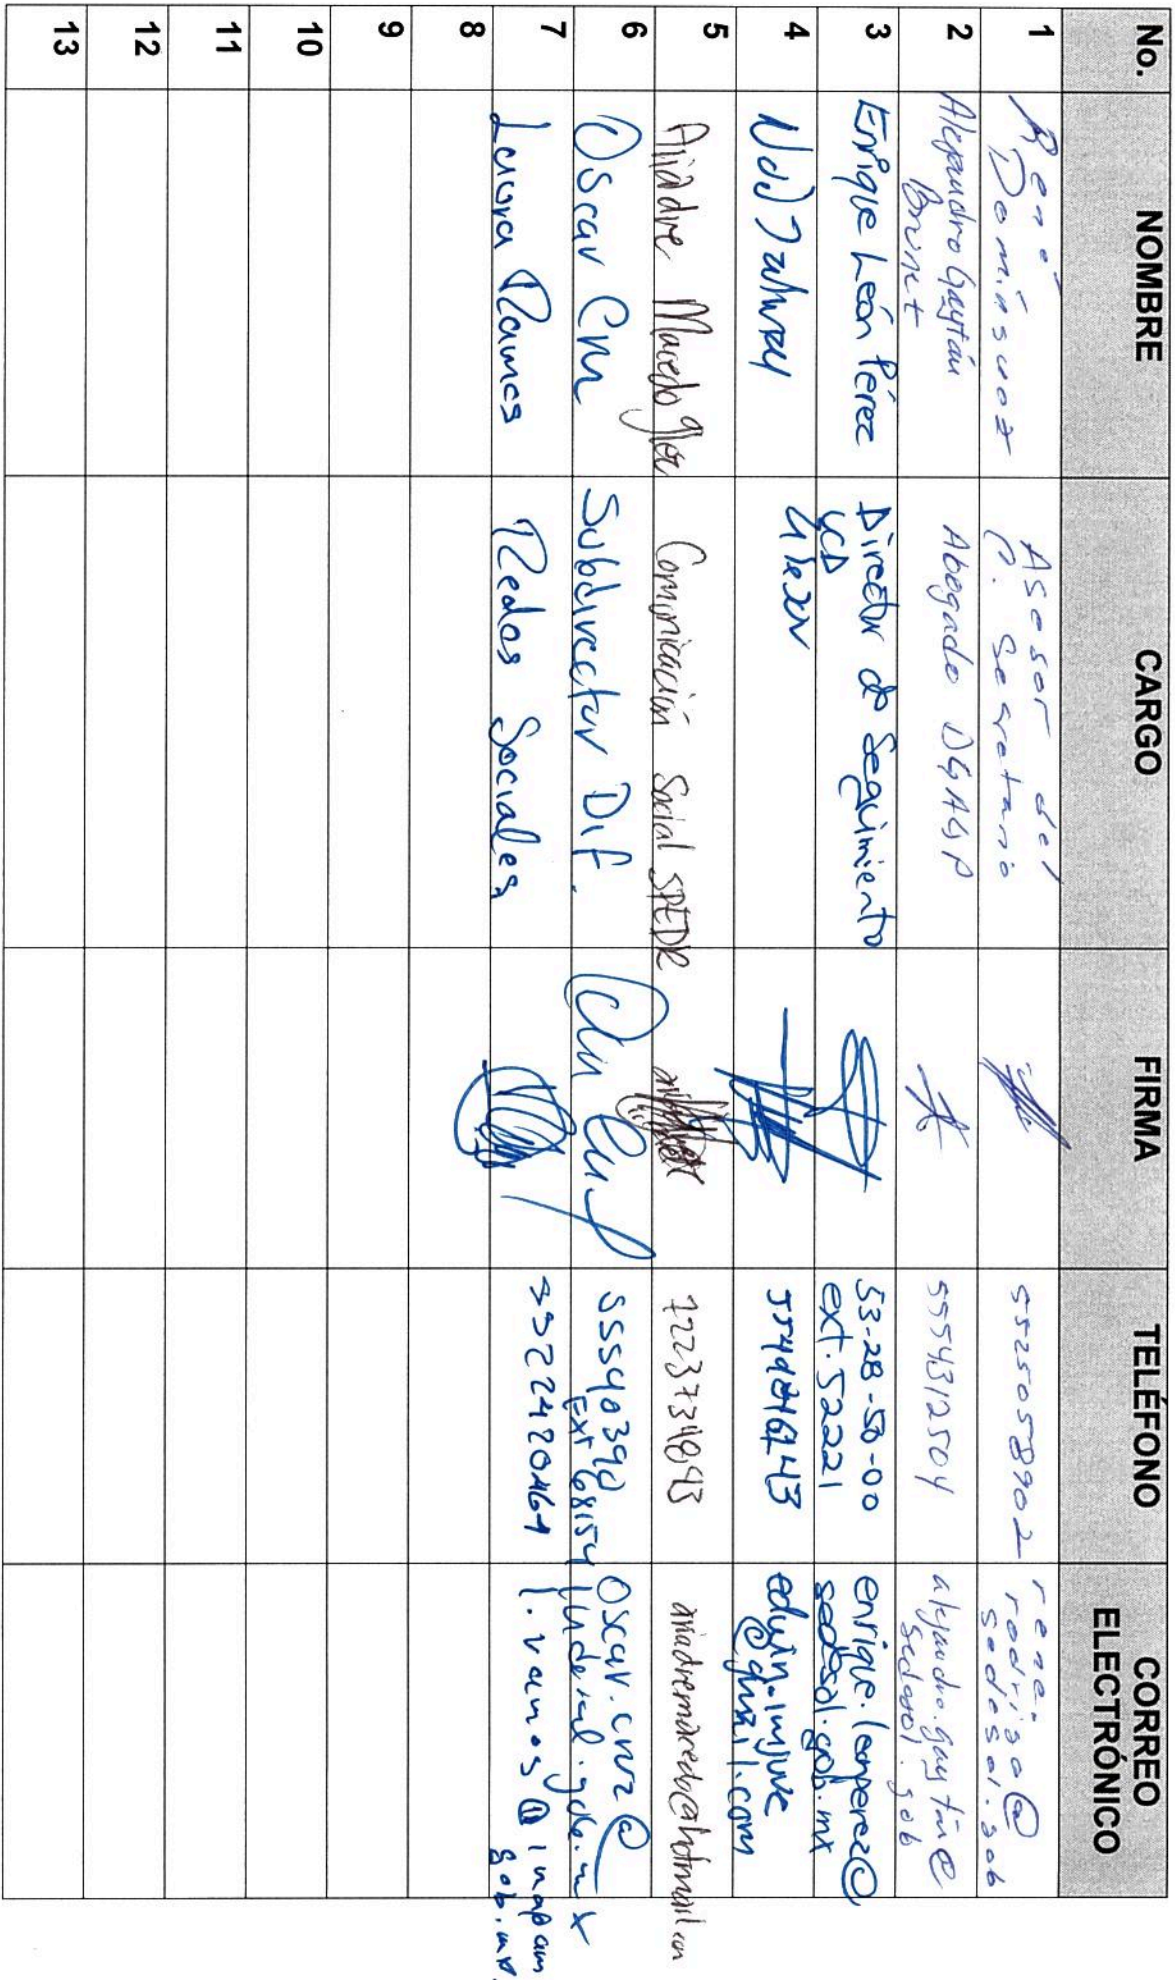 No. NOMBRE CARGO FIRMA TELÉFONO CORREO ELECTRÓNICO
1 René Domínguez Asesor del C. Secretario 5525058902 rene. rodrigo@ sedesol.gob
2 Alejandro Gaytán Brunet Abogado DGAGP 5554312504 alejandro.gaytan@ sedesol.gob
3 Enrique León Pérez Director de Seguimiento UCD 53-28-50-00 ext. 52221 enrique.leonperez@ sedesol.gob.mx
4 edwin.imjuve @gmail.com
5 Ariadne Macedo Comunicación Social SPEDR 7223734843 ariadnemacedo@hotmail.com
6 Oscar Cruz Subdirector Dif. 555540390 Ext 68154 Oscar.cruz@ indesol.gob.mx
7 Laura Ramos Redes Sociales l.ramos@inapam gob.mx
8
9
10
11
12
13